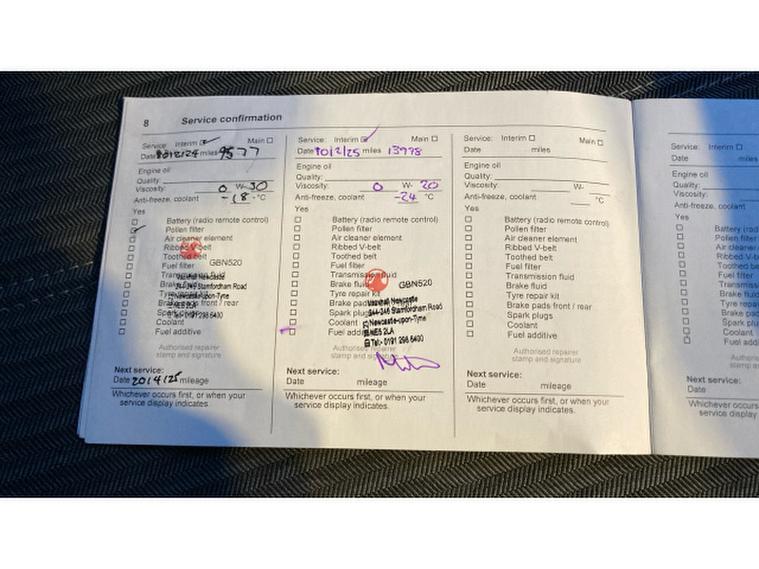 8 Service confirmation
Service: Interim ☑ Main ☐
miles 9577
Engine oil
Quality:
Viscosity: 0 W-30
Anti-freeze, coolant -18 °C
Yes
☐ Battery (radio remote control)
☑ Pollen filter
☐ Air cleaner element
☐ Ribbed V-belt
☐ Toothed belt
☐ Fuel filter GBN520
☐ Transmission fluid
Vauxhall Newcastle
☐ Brake fluid
244-246 Stamfordham Road
☐ Tyre repair kit
Newcastle-upon-Tyne
☐ Brake pads front / rear
NE5 2LA
☐ Spark plugs
Tel:- 0191 298 6400
☐ Coolant
☐ Fuel additive
Authorised repairer
stamp and signature
Next service:
Date 2014/25 mileage
Whichever occurs first, or when your
service display indicates.
Service: Interim ☑ Main ☐
Date 10/2/25 miles 13978
Engine oil
Quality:
Viscosity: 0 W- 20
Anti-freeze, coolant -24 °C
Yes
☐ Battery (radio remote control)
☐ Pollen filter
☐ Air cleaner element
☐ Ribbed V-belt
☐ Toothed belt
☐ Fuel filter
☐ Transmission fluid
☐ Brake fluid GBN520
☐ Tyre repair kit
Vauxhall Newcastle
☐ Brake pads
244-246 Stamfordham Road
☐ Spark plugs
Newcastle-upon-Tyne
☐ Coolant
NE5 2LA
☑ Fuel additive
Tel:- 0191 298 6400
Authorised repairer
stamp and signature
Next service:
Date mileage
Whichever occurs first, or when your
service display indicates.
Service: Interim ☐ Main ☐
Date miles
Engine oil
Quality:
Viscosity: W-
Anti-freeze, coolant °C
Yes
☐ Battery (radio remote control)
☐ Pollen filter
☐ Air cleaner element
☐ Ribbed V-belt
☐ Toothed belt
☐ Fuel filter
☐ Transmission fluid
☐ Brake fluid
☐ Tyre repair kit
☐ Brake pads front / rear
☐ Spark plugs
☐ Coolant
☐ Fuel additive
Authorised repairer
stamp and signature
Next service:
Date mileage
Whichever occurs first, or when your
service display indicates.
Service: Interim ☐
Date miles
Engine oil
Quality:
Viscosity:
Anti-freeze, coolant
Yes
☐ Battery (rad
☐ Pollen filter
☐ Air cleaner
☐ Ribbed V-b
☐ Toothed be
☐ Fuel filter
☐ Transmissi
☐ Brake fluid
☐ Tyre repair
☐ Brake pads
☐ Spark plug
☐ Coolant
☐ Fuel additi
Authorise
stamp a
Next service:
Date
Whichever occurs
service display